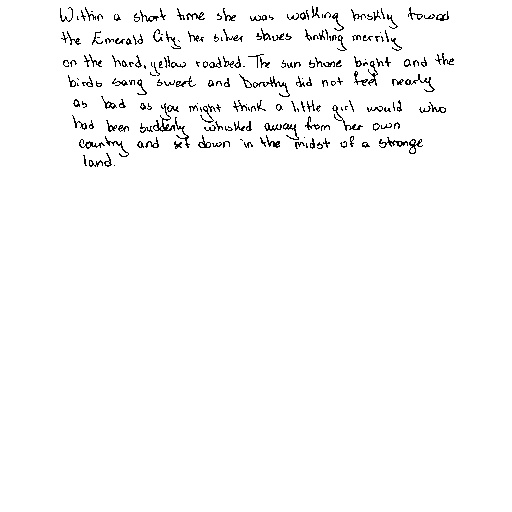 Within a short time she was walking briskly toward
the Emerald City, her silver shoes tinkling merrily
on the hard, yellow roadbed. The sun shone bright and the
birds sang sweet and Dorothy did not feel nearly
as bad as you might think a little girl would who
had been suddenly whisked away from her own
country and set down in the midst of a strange
land.